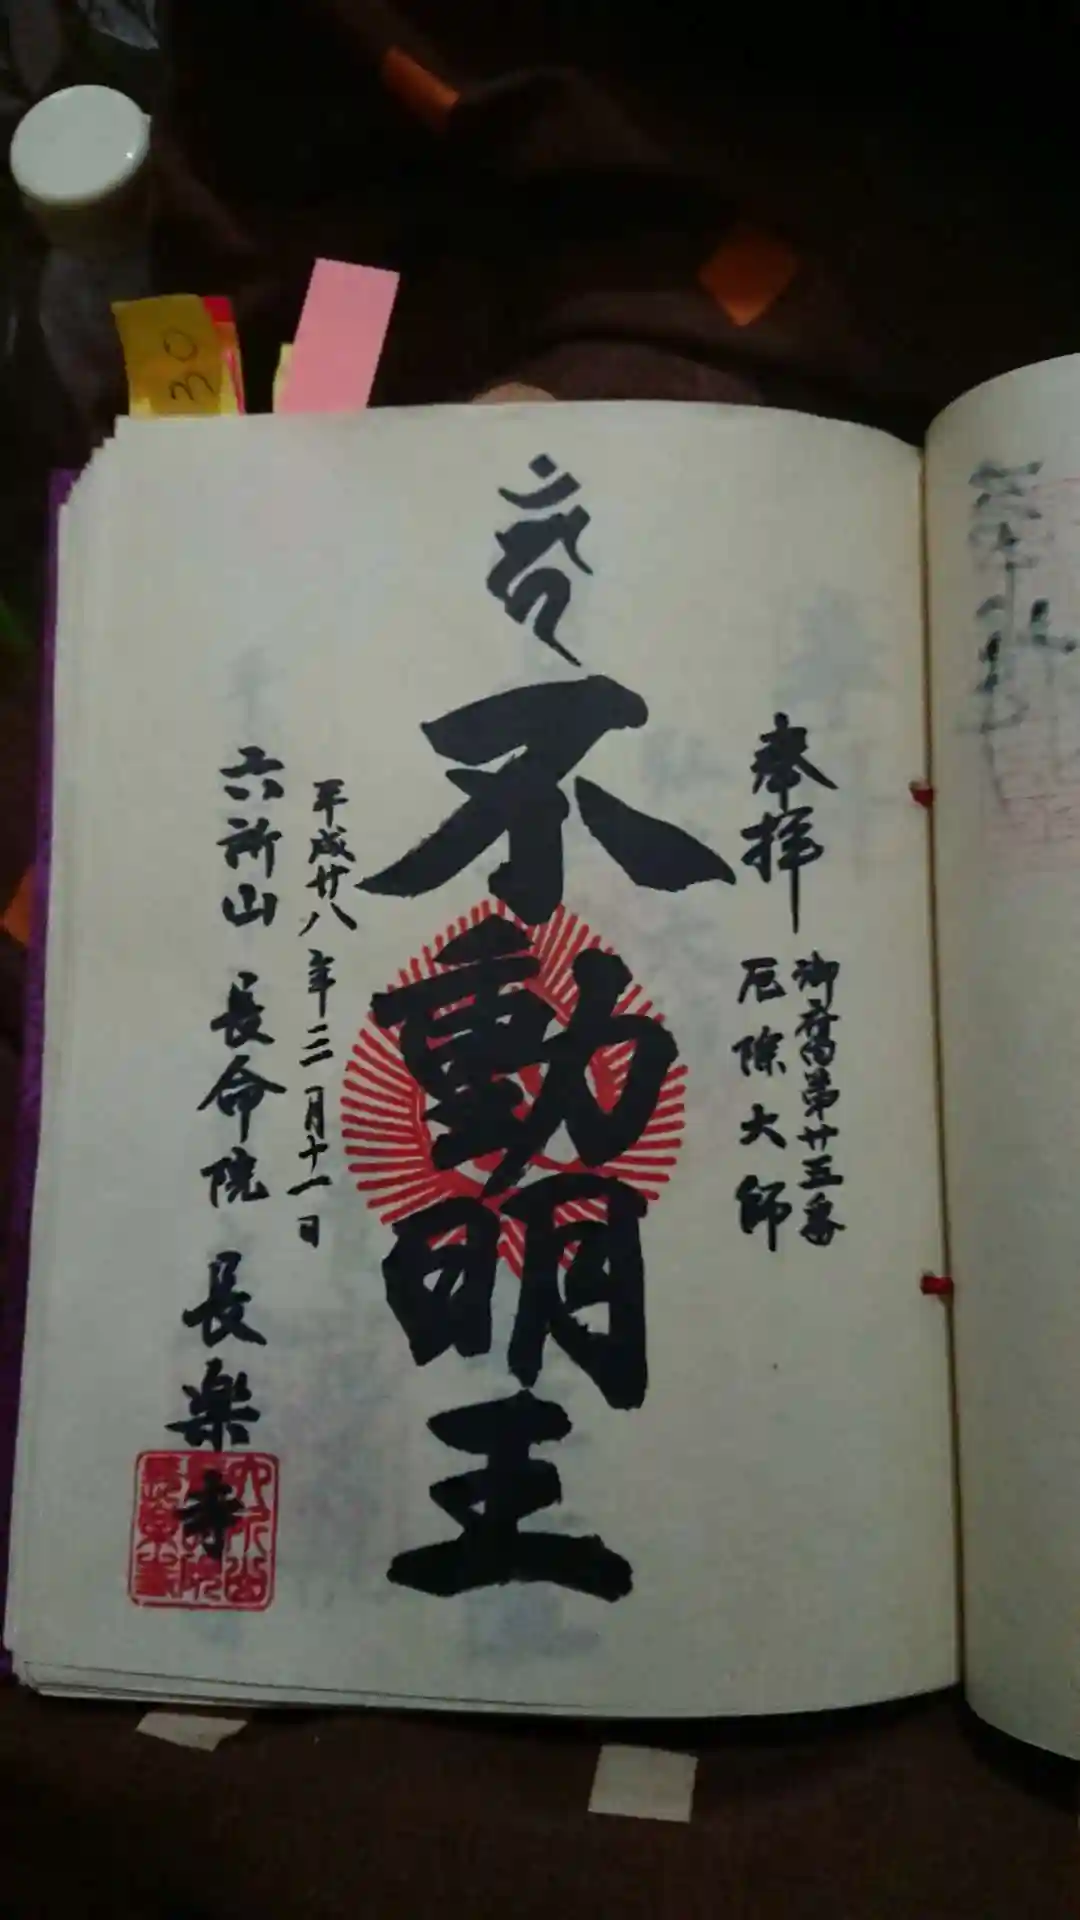 奉拝
御府内第廿五番
厄除大師
不動明王
平成廿八年三月十一日
六所山 長命院 長楽寺
30